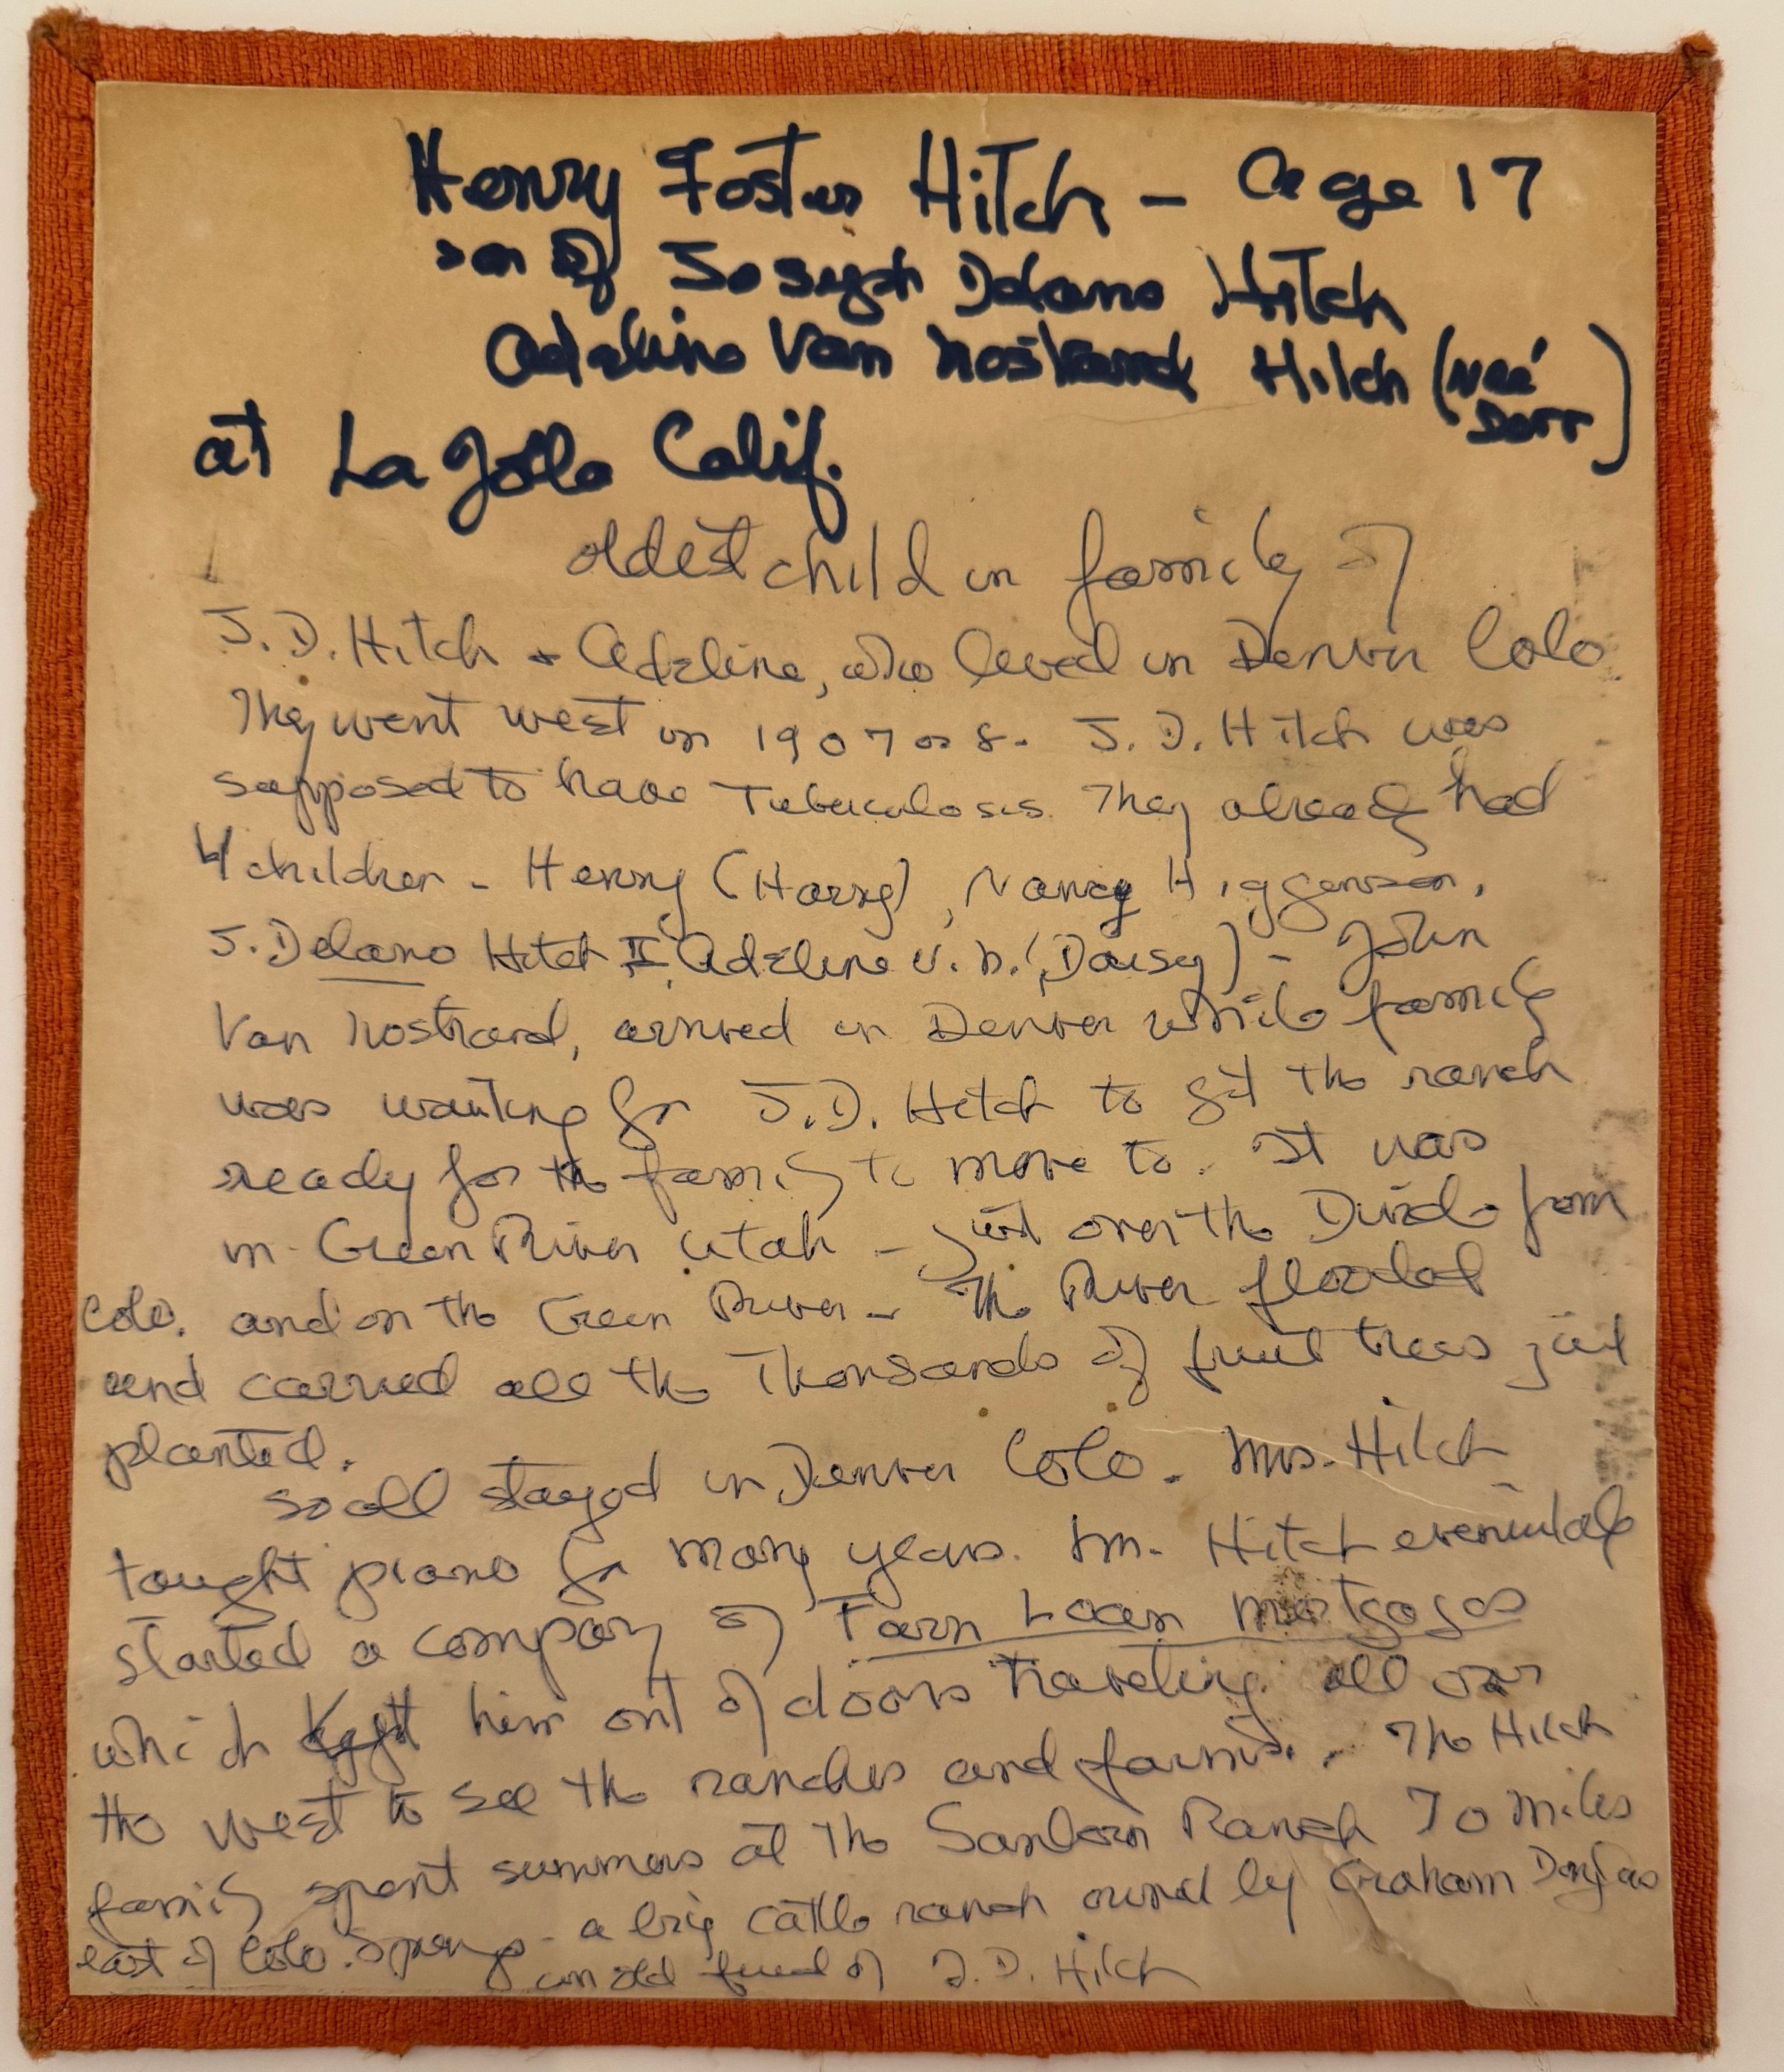 Henry Foster Hitch - Age 17
son of Joseph Delano Hitch
Adeline Van Nostrand Hitch (neé
Dorr)
at La Jolla Calif.
oldest child in family of
J. D. Hitch + Adeline, who lived in Denver Colo
They went west in 1907 or 8. J. D. Hitch was
supposed to have Tuberculosis. They already had
4 children - Henry (Harry), Nancy Higgenson,
J. Delano Hitch II, Adeline V. N. (Daisy) - John
Van Nostrand, arrived in Denver while family
was waiting for J. D. Hitch to get the ranch
ready for the family to move to. It was
in Green River Utah - just over the Divide from
Colo. and on the Green River - The River flooded
and carried all the Thousands of fruit trees just
planted.
So all stayed in Denver Colo. Mrs. Hitch
taught piano for many years. Mr. Hitch eventually
started a company of Farm Loan Mortgages
which kept him out of doors traveling all over
the west to see the ranches and farms. The Hitch
family spent summers at the Sanborn Ranch 70 miles
east of Colo. Springs - a big cattle ranch owned by Graham Douglas
an old friend of J. D. Hitch